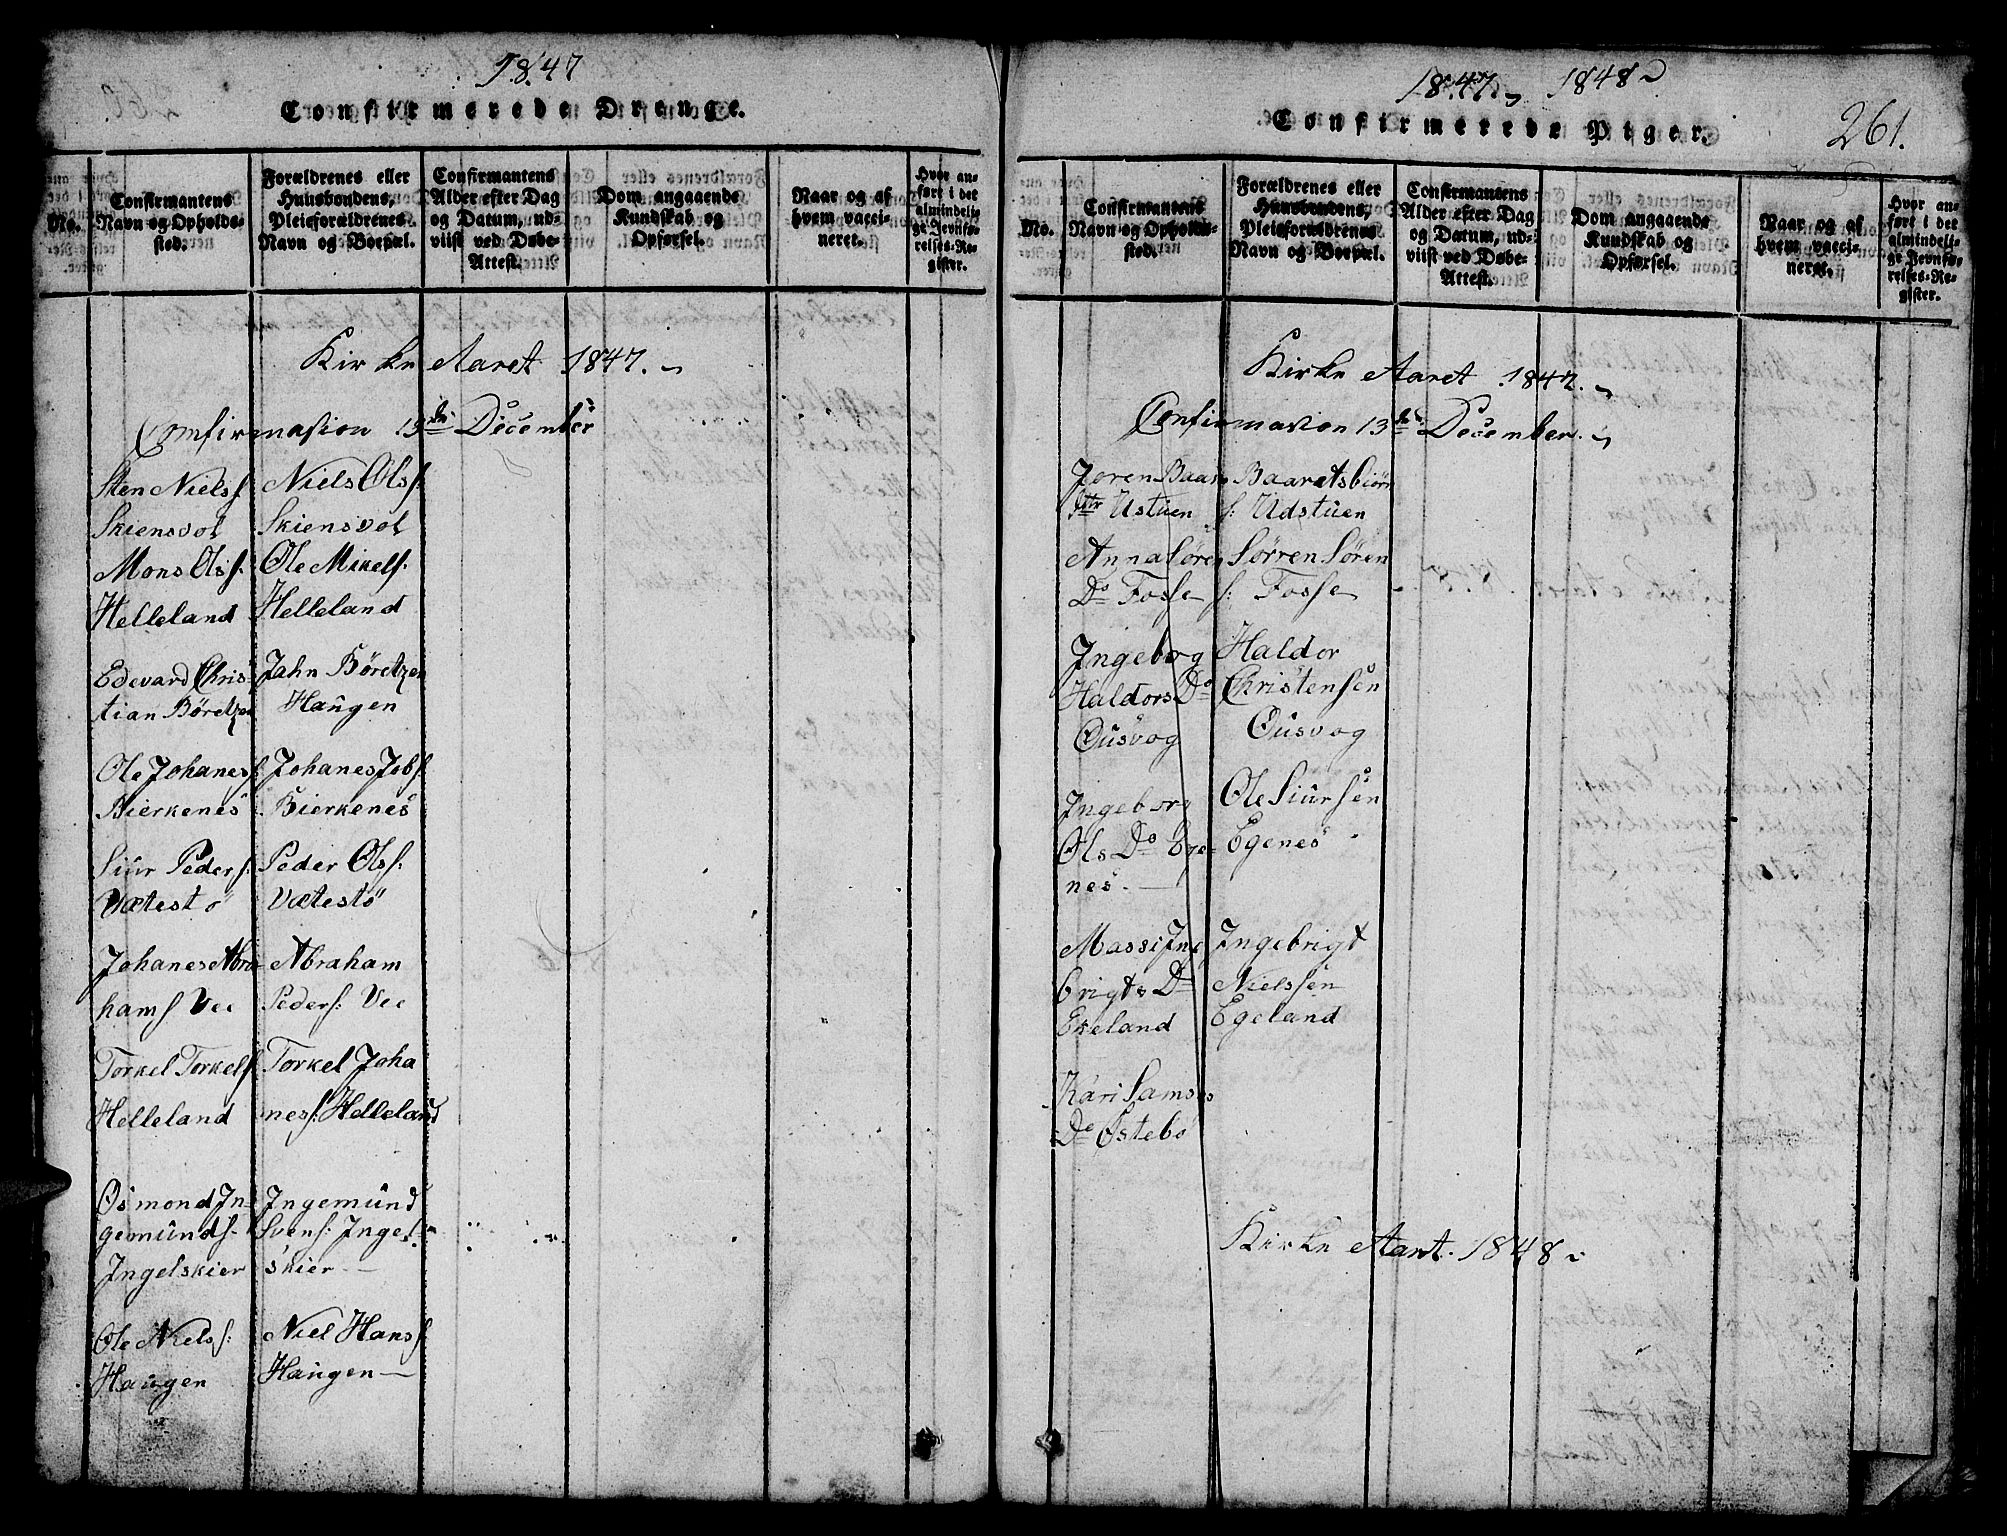 1847
Confirmerede Drenge.
No.
Confirmantens
Navn og Opholds-
sted.
Forældrenes eller
Huusbondens,
Pleieforældrenes
Navn og Boepæl.
Confirmantens
Alder efter Dag
og Datum, ud-
viist ved Døbe-
Attest.
Dom angaaende
Kundskab og
Opførsel.
Naar og af
hvem vacci-
neret.
Hvor an-
ført i det
almindeli-
ge Jevnfø-
relses-Re-
gister.
Kirke Aaret 1847.
Comfirmasion 13de December
Sten Nielss.
Skiensvol
Niels Olss.
Skiensvol
Mons Olss.
Helleland
Ole Mikels.
Helleland
Edevard Chris-
tian Böretzen
Jahn Böretzen
Haugen
Ole Johaness.
Bierkenes
Johanes Jobs.
Bierkenes
Siur Peders.
Vætestö
Peder Olss.
Vætestö
Johanes Abra-
hams Vee
Abraham
Peders: Vee
Torkel Torkels.
Helleland
Torkel Joha
ness: Helleland
Osmond In-
gemunds.
Ingelskier
Ingemund
Svens: Ingel-
skier
Ole Nielss:
Haugen
Niel Hanss.
Haugen
1847. 1848
Confirmerede Piger.
261.
No.
Confirmantens
Navn og Opholds-
sted.
Forældrenes eller
Huusbondens,
Pleieforældrenes
Navn og Boepæl.
Confirmantens
Alder efter Dag
og Datum, ud-
viist ved Døbe-
Attest.
Dom angaaende
Kundskab og
Opførsel.
Naar og af
hvem vacci-
neret.
Hvor an-
ført i det
almindeli-
ge Jevnfø-
relses-Re-
gister.
Kirke Aaret 1847.
Confirmasion 13de December.
Joren Baars
dtr Ustuen
Baaretsbiörn
s: Udstuen
Anna Sören
Do Fosse
Sörren Sören
s: Fosse
Ingeborg
Haldors Do
Ousvog
Haldor
Christensen
Ousvog
Ingeborg
Ols Do Ege-
nes.
Ole Siursen
Egenes
Massi Ing
brigts Do
Ekeland
Ingebrigt
Nielssen
Egeland
Kari Samsos
Do Østebö
Kirke Aaret 1848